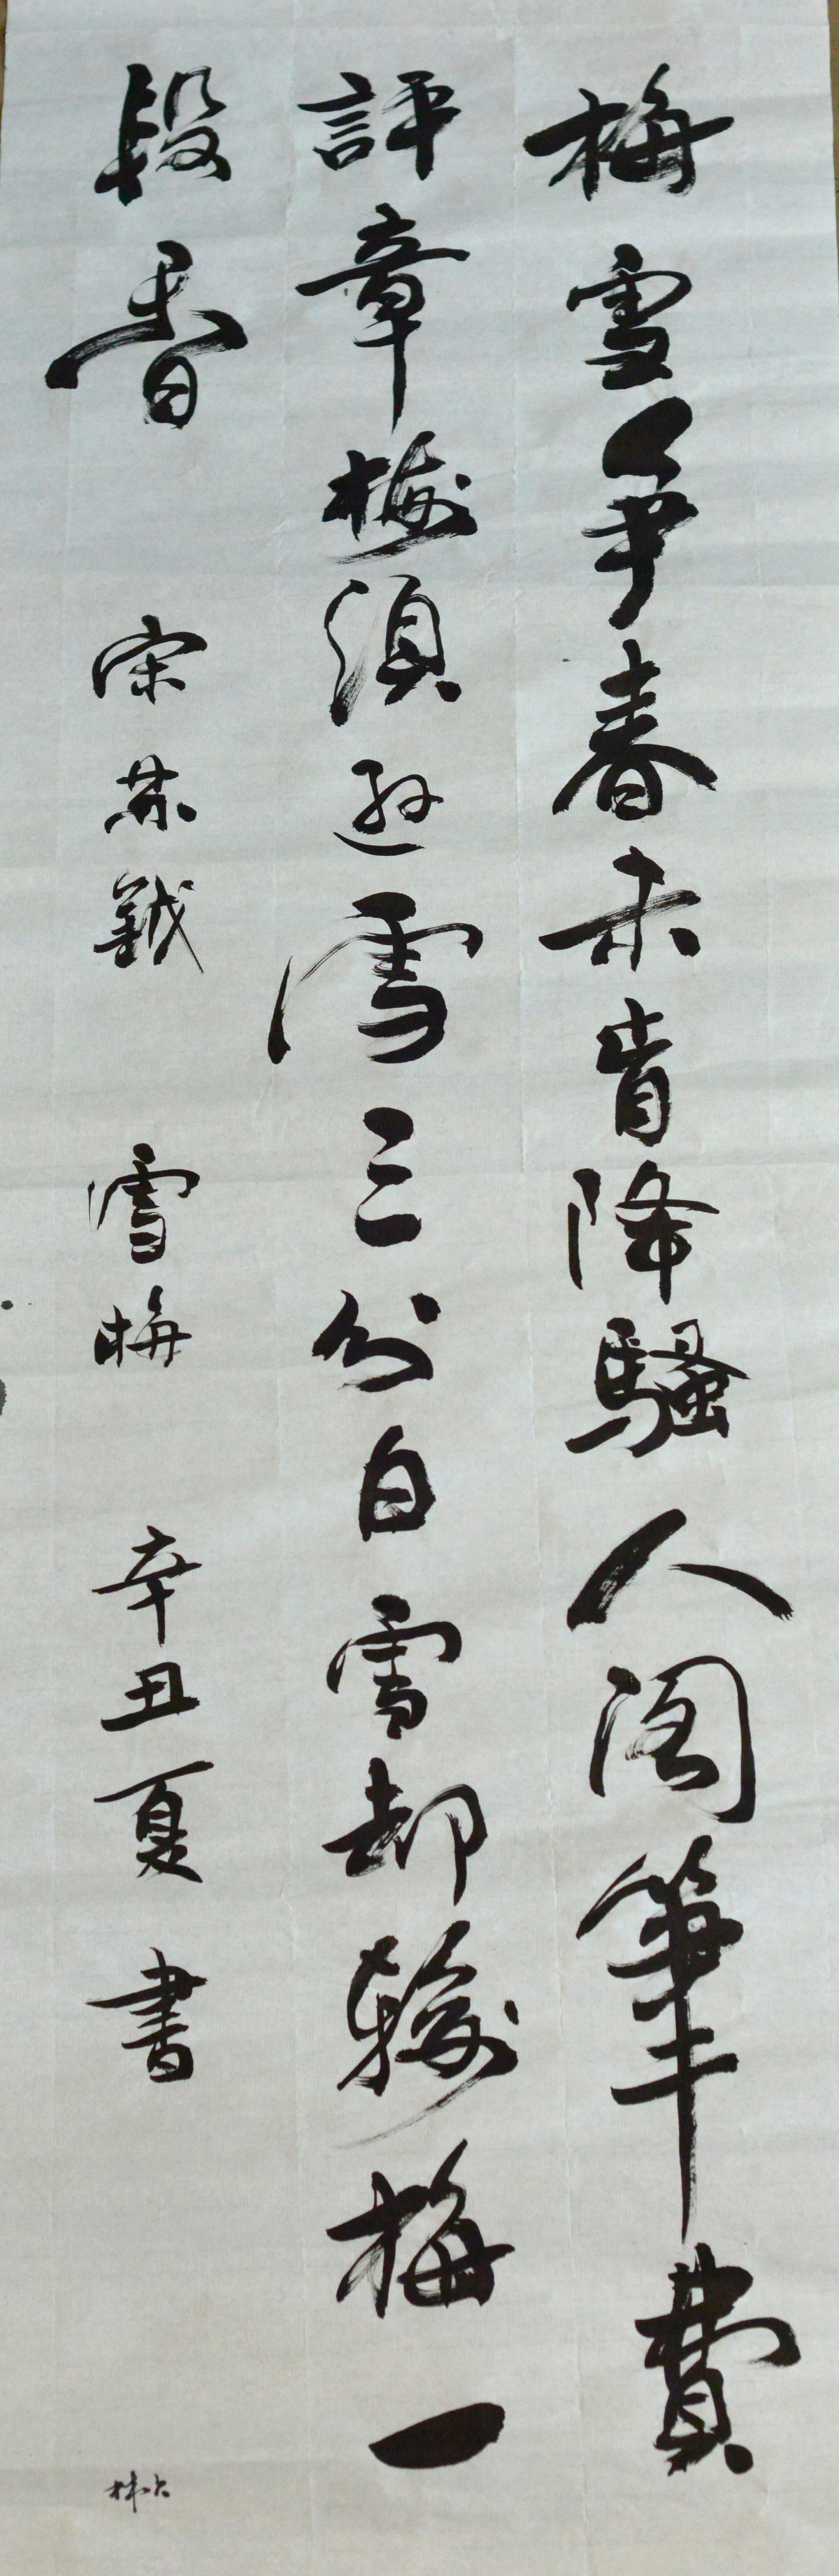 梅雪争春未肯降騷人閣筆費
評章梅須遜雪三分白雪却輸梅一
段香 宋 苏鉞 雪梅 辛丑夏 書